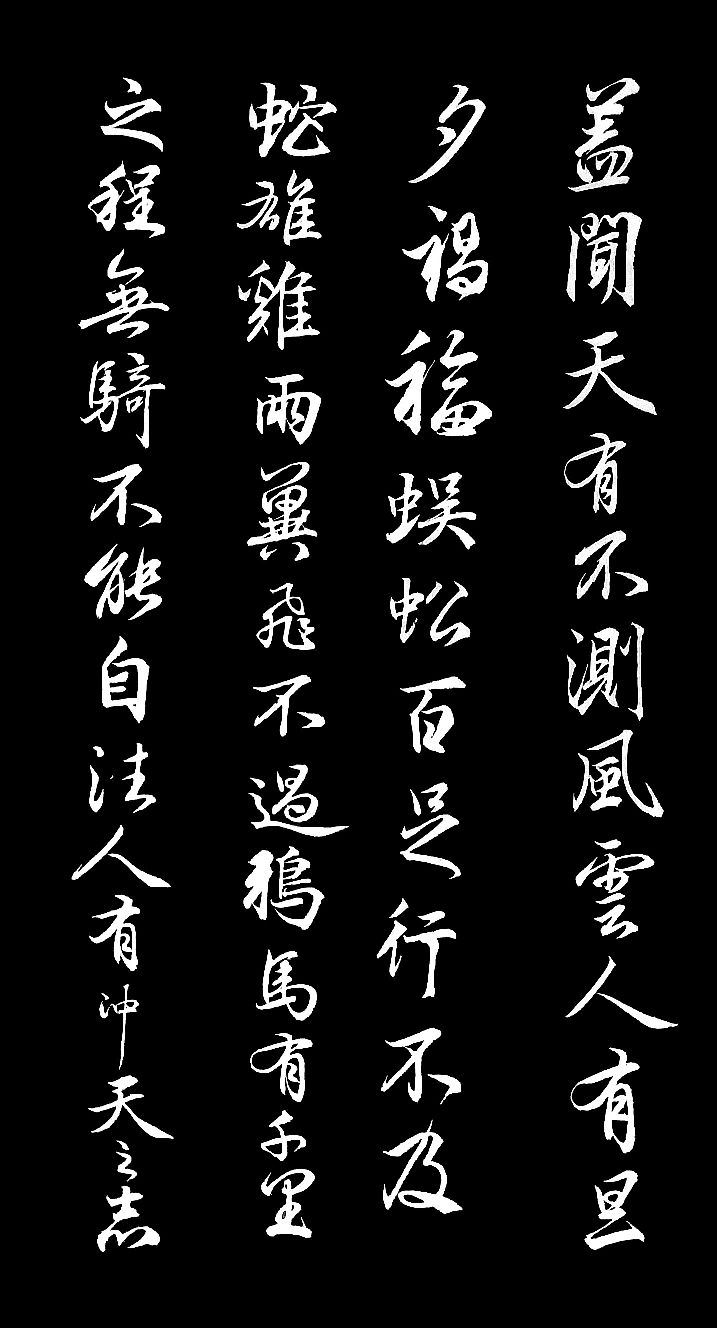 蓋聞天有不測風雲人有旦
夕禍福蜈蚣百足行不及
蛇雄雞兩翼飛不過鴉馬有千里
之程無騎不能自往人有沖天之志